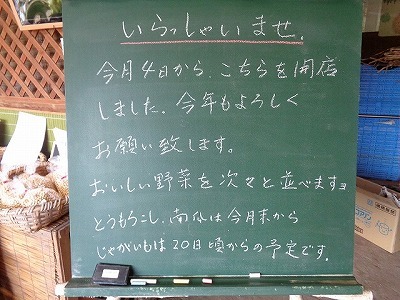 いらっしゃいませ.
今月4日から、こちらを開店
しました。今年もよろしく
お願い致します。
おいしい野菜を次々と並べますヨ
とうもろこし、南瓜は今月末から
じゃがいもは20日頃からの予定です。